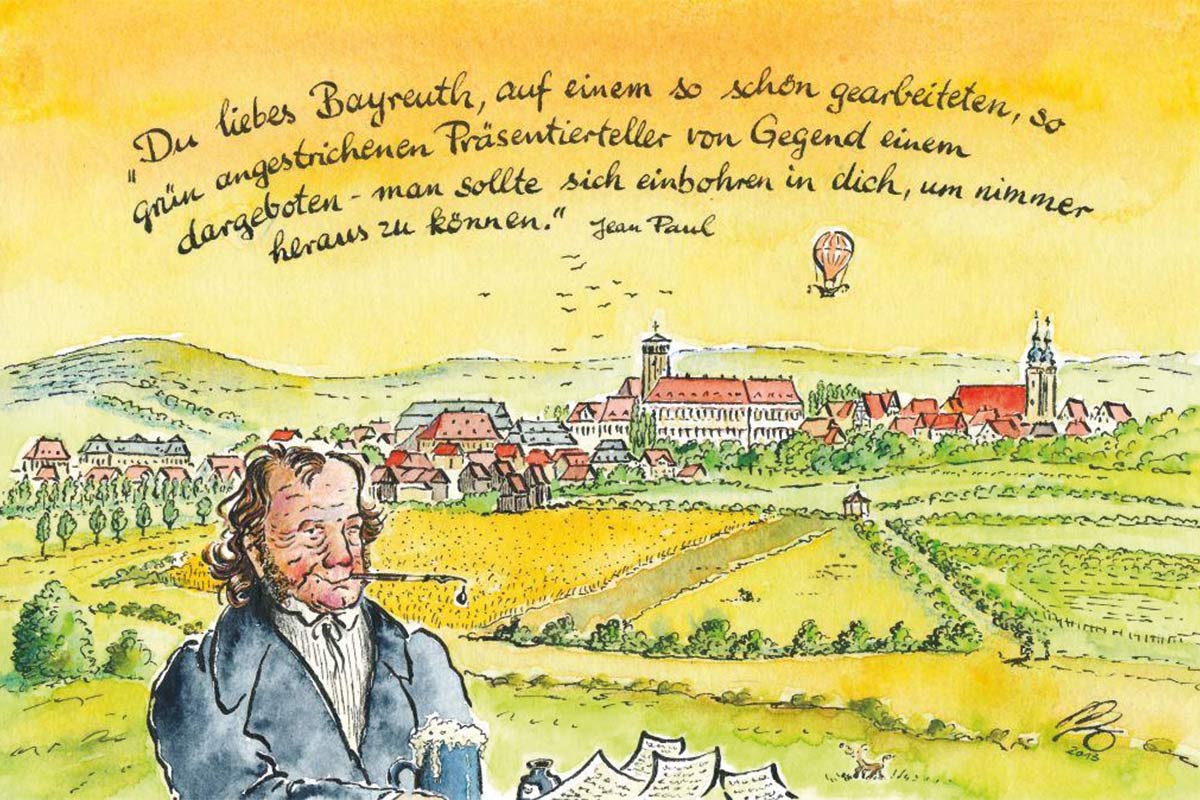 "Du liebes Bayreuth, auf einem so schön gearbeiteten, so
grün angestrichenen Präsentierteller von Gegend einem
dargeboten - man sollte sich einbohren in dich, um nimmer
heraus zu können." Jean Paul
2013